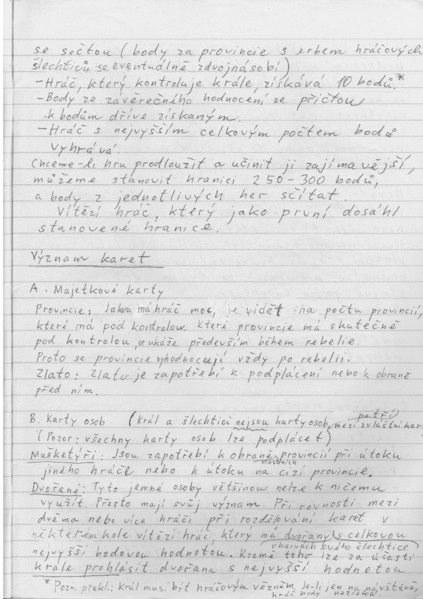 se sečtou (body za provincie s erbem hráčových
šlechticů se eventuálně zdvojnásobí)
-Hráč, který kontroluje krále, získává 10 bodů.*
-Body ze závěrečného hodnocení se přičtou
k bodům dříve získaným.
-Hráč s nejvyšším celkovým počtem bodů
vyhrává.
Chceme-li hru prodloužit a učinit ji zajímavější,
můžeme stanovit hranici 250-300 bodů,
a body z jednotlivých her sčítat.
Vítězí hráč, který jako první dosáhl
stanovené hranice.
Význam karet
A. Majetkové karty
Provincie: Jakou má hráč moc, je vidět na počtu provincií,
které má pod kontrolou. Které provincie má skutečně
pod kontrolou, ukáže především během rebelie.
Proto se provincie vyhodnocují vždy po rebelii.
Zlato: Zlato je zapotřebí k podplácení nebo k obraně
před ním.
B. Karty osob (Král a šlechtici nejsou karty osob, patří mezi zvláštní kar
(Pozor: všechny karty osob lze podplácet)
Mušketýři: Jsou zapotřebí k obraně vlastních provincií při útoku
jiného hráče nebo k útoku na cizí provincie.
Dvořané: Tyto jemné osoby většinou nelze k ničemu
využít. Přesto mají svůj význam. Při rovnosti mezi
dvěma nebo více hráči při rozdělování karet v
některém kole vítězí hráč, který má dvořany s celkovou
nejvyšší bodovou hodnotou. Kromě toho lze za účasti
krále prohlásit dvořana s nejvyšší hodnotou
* Pozn. překl.: Král musí být hráčovým vězněm, je-li jen na návštěvě,
hráč body nezíská.